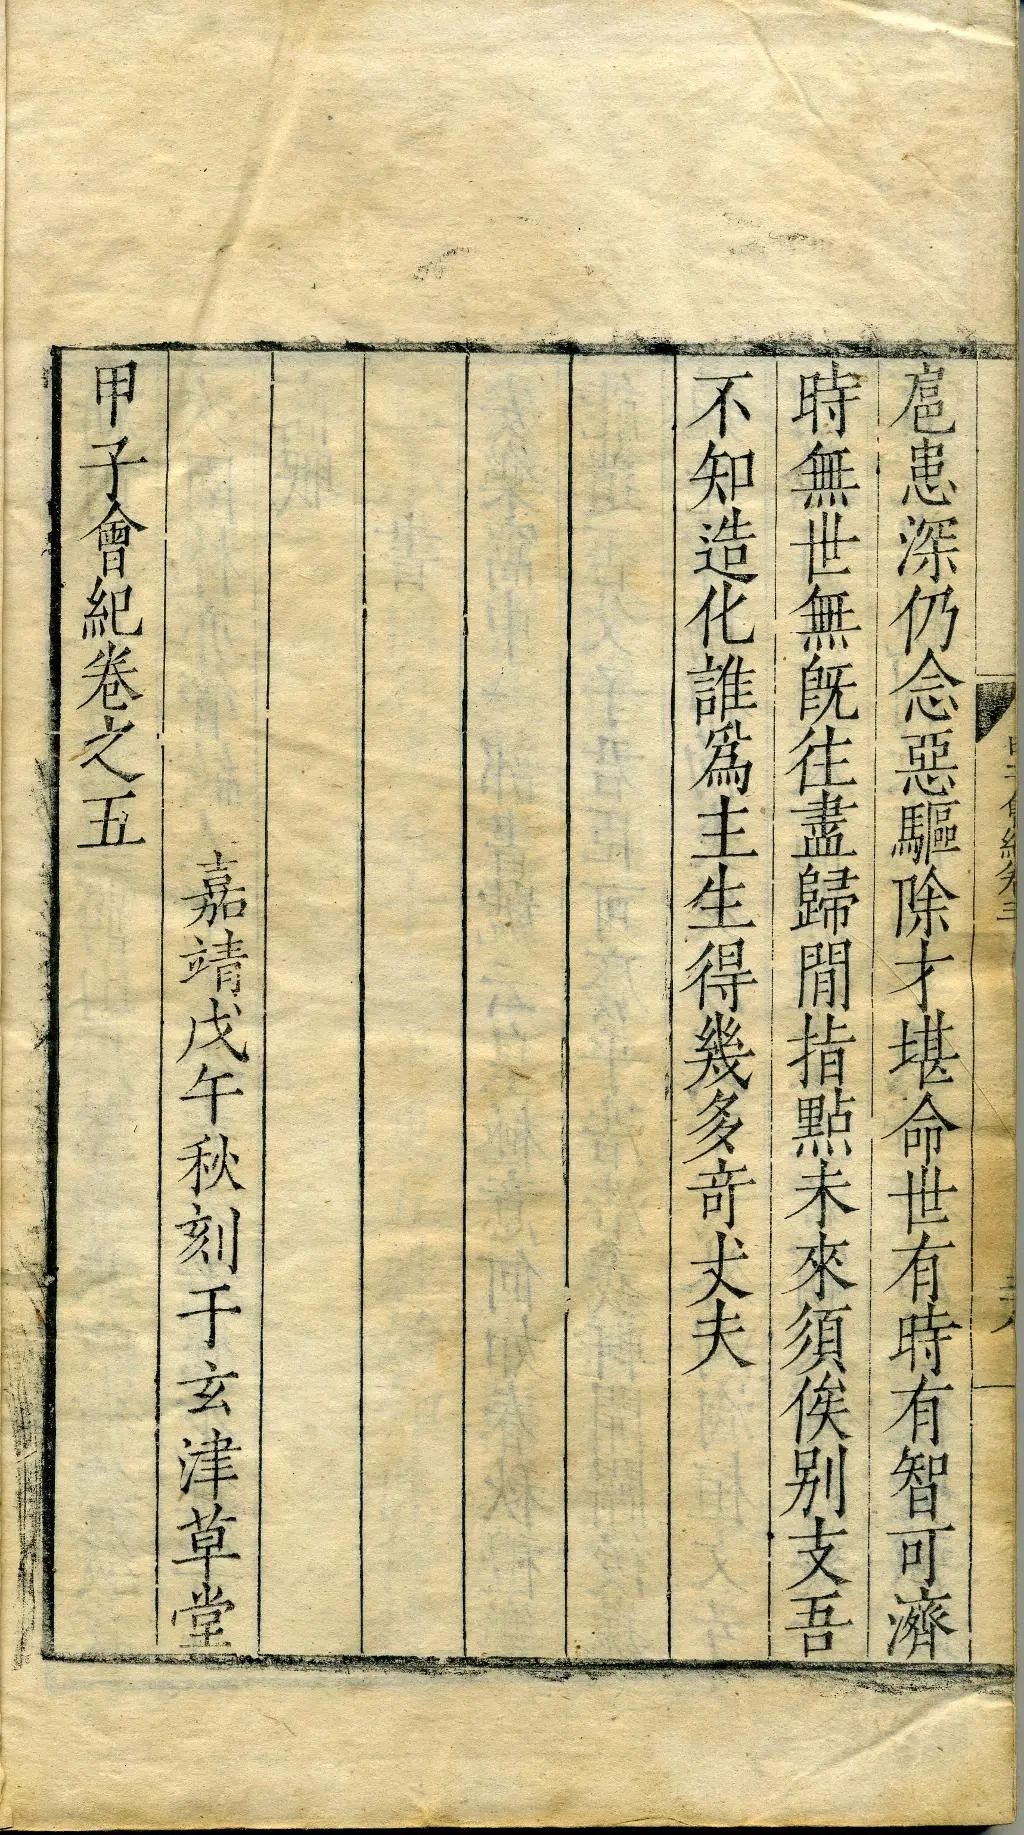 扈患深仍念惡驅除才堪命世有時有智可濟
時無世無既往盡歸閒指點未來須俟別支吾
不知造化誰爲主生得幾多奇丈夫
嘉靖戊午秋刻于玄津草堂
甲子會紀卷之五